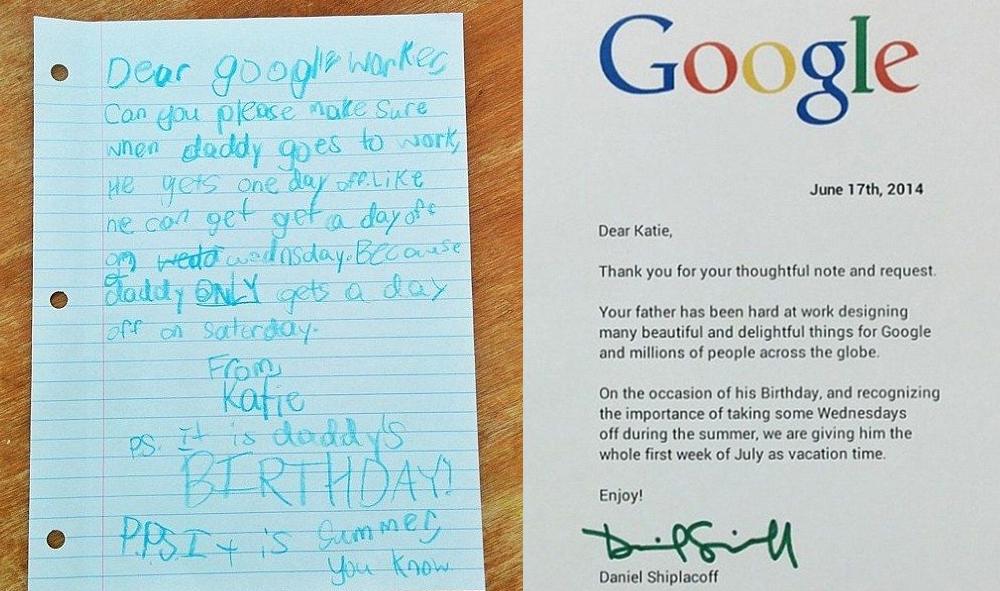 Dear google worker,
Can you please make sure
when daddy goes to work,
He gets one day off. Like
he can get get a day off
on wedo wednsday. BECause
daddy ONLY gets a day
off on saterday.
From,
Katie
PS. It is daddy's
BIRTHDAY!
P.P.S. It is Summer,
You Know.
Google
June 17th, 2014
Dear Katie,
Thank you for your thoughtful note and request.
Your father has been hard at work designing
many beautiful and delightful things for Google
and millions of people across the globe.
On the occasion of his Birthday, and recognizing
the importance of taking some Wednesdays
off during the summer, we are giving him the
whole first week of July as vacation time.
Enjoy!
Daniel Shiplacoff